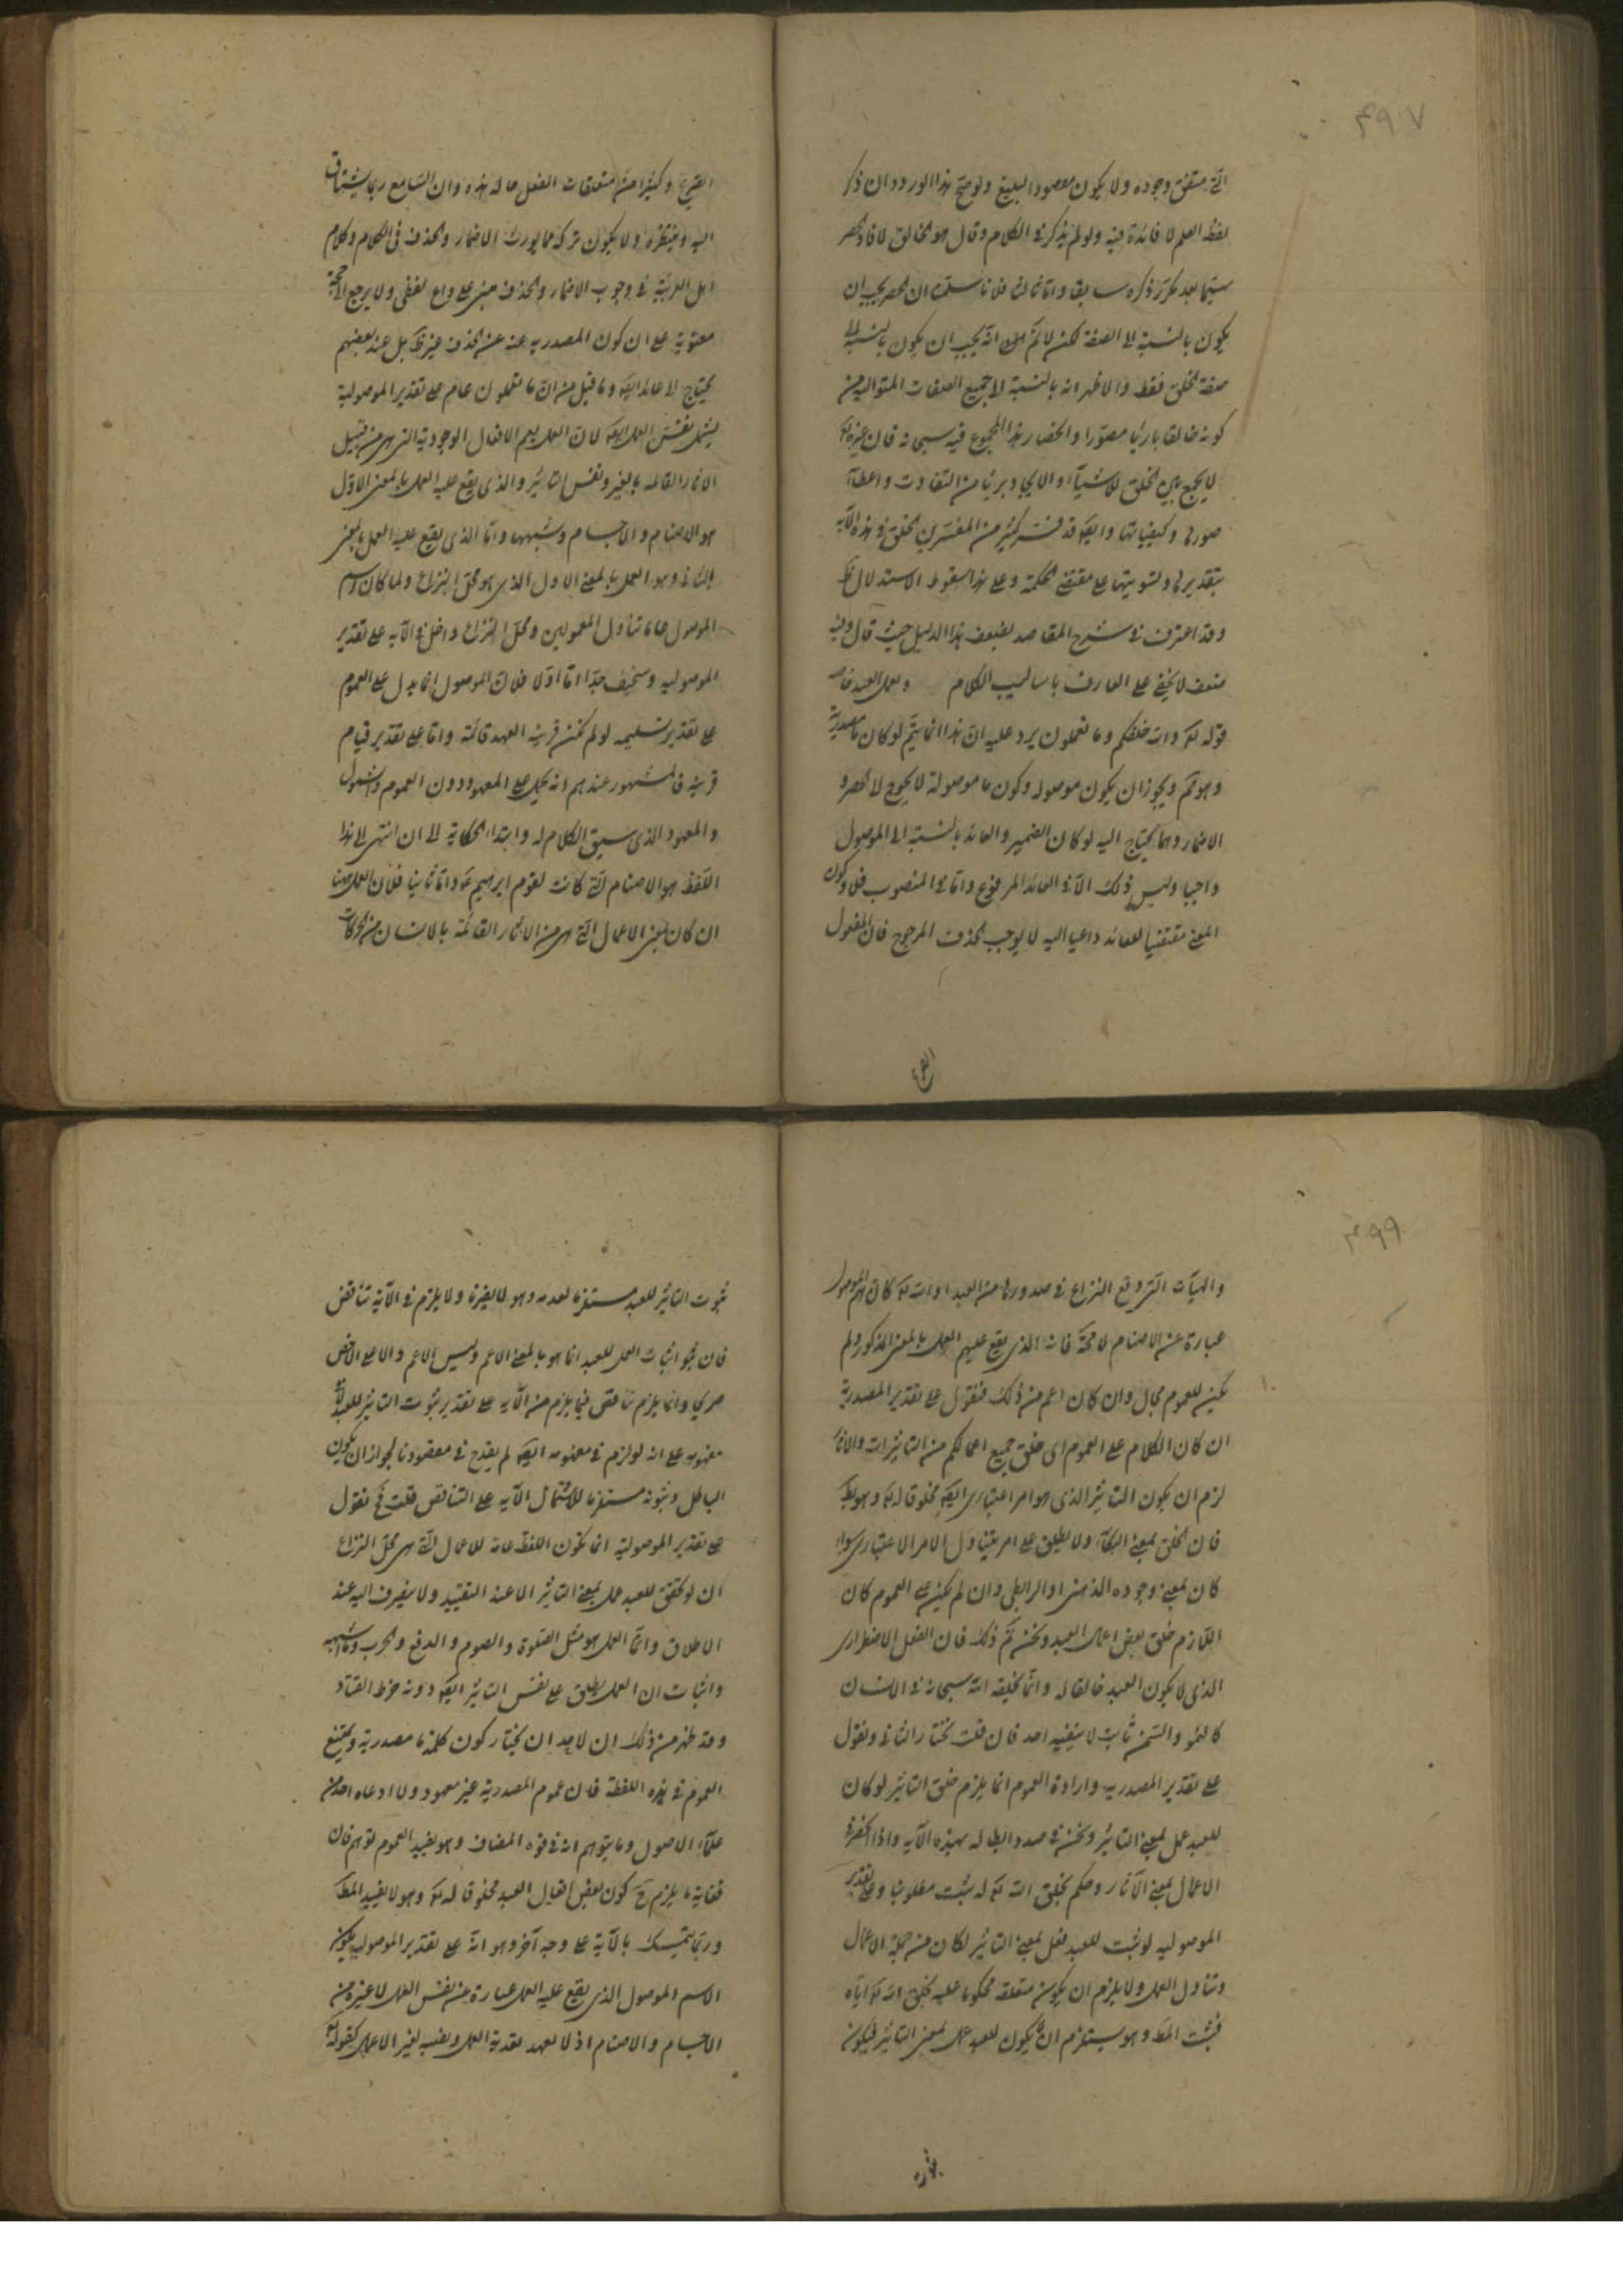 ٤٩٧
وجوده ولا يكون
لفظ العلم لا فائدة فيه ولو لم يذكر في الكلام وقال هو الخالق لافاد الحصر
سيما بعد تكرر ذكره سابقا واما ثالثا فلانا سلمنا ان الحصر يجب ان
يكون بالنسبة الى الصفة لكن لا نم انه يجب ان يكون بالنسبة الى
صفة الخلق فقط والاظهر انه بالنسبة الى جميع الصفات المتوالية من
كونه خالقا بارئا مصورا وانحصار هذا المجموع فيه سبحانه فان غيره تع
لا يجمع بين الخلق للاشياء والايجاد بريئا من التفاوت واعطاء
صورها وكيفياتها وايضا قد فسر كثير من المفسرين الخلق في هذه الآية
بتقديرها وتسويتها على مقتضى الحكمة وعلى هذا سقوط الاستدلال ظ
وقد اعترف في شرح المقاصد بضعف هذا الدليل حيث قال وفيه
ضعف لا يخفى على العارف باساليب الكلام
قوله تع والله خلقكم وما تعملون يرد عليه ان هذا انما يتم لو كان ما مصدرية
وهو مم ويجوز ان يكون موصوله وكون ما موصولة لا يحوج
الاضمار وما يحتاج اليه لو كان الضمير والعائد بالنسبة الى الموصول
واجبا وليس ذلك الا في العائد المرفوع واما في المنصوب فلا وكون
المعنى مقتضيا للعائد داعيا اليه لا يوجب الحذف المرجوح فان المفعول
وكثيرا من متعلقات الفعل حاله هذه وان السامع ربما يشتاق
اليه وينتظره ولا يكون تركه مما يورث الاضمار والحذف في الكلام وكلام
اهل العربية في وجوب الاضمار والحذف مبنى على لفظى ولا يرجع الى
معنوية على ان كون المصدرية غنية عن الحذف غير ظ بل عند بعضهم
يحتاج الى عائد ايضا وما قيل من ان ما تعملون عام على تقدير الموصولية
يشمل نفس العمل ايضا لان العمل يعم الافعال الوجودية التى هى من قبيل
الآثار القائمة بالغير ونفس التاثير والذى يقع عليه العمل بالمعنى الاول
هو الاصنام والاجسام وشبهها واما الذى يقع عليه العمل بالمعنى
الثانى وهو العمل بالمعنى الاول الذى هو محل النزاع ولما كان اسم
الموصول عاما تناول المعمولين ومحل النزاع داخل في الآية على تقدير
الموصوليه وسخيف جدا اما اولا فلان الموصول انما يدل على العموم
على تقدير تسليمه لو لم يكن قرينة العهد قائمة واما على تقدير قيام
قرينة فالمشهور عندهم انه يحمل على المعهود دون العموم والشمول
والمعهود الذى سيق الكلام له وابتداء الحكاية الى ان انتهى الى هذا
اللفظ هو الاصنام التى كانت لقوم ابرهيم ع واما ثانيا فلان العمل ههنا
ان كان بمعنى الاعمال التى هى من الآثار القائمة بالانسان من الحركات
٤٩٩
والهيآت التى وقع النزاع في صدورها من العبد او الله تع كان الموصول
عبارة عن الاصنام لا محة فانه الذى يقع عليهم العمل بالمعنى المذكور ولم
يكن للعموم مجال وان كان اعم من ذلك فنقول على تقدير المصدرية
ان كان الكلام على العموم اى خلق جميع اعمالكم من التاثيرات والآثار
لزم ان يكون التاثير الذى هو امر اعتبارى ايضا مخلوقا له تع وهو بط
فان الخلق بمعنى ولا يطلق على امر يتناول الامر الاعتبارى سواء
كان بمعنى وجوده الذهنى او الرابطى وان لم يكن على العموم كان
اللازم خلق بعض اعمال العبد ونحن نم ذلك فان الفعل الاضطرارى
الذى لا يكون العبد خالقا له وانما يخلقه الله سبحانه في الانسان
كالنمو والسمن ثابت لا ينفيه احد فان قلت نختار الثانى ونقول
على تقدير المصدريه وارادة العموم انما يلزم خلق التاثير لو كان
للعبد عمل بمعنى التاثير ونحن في صدد ابطاله بهذه الآية واذا انحصر في
الاعمال بمعنى الآثار وحكم بخلق الله تع له ثبت مطلوبنا وعلى تقدير
الموصوليه لو ثبت للعبد فعل بمعنى التاثير لكان من جملة الاعمال
وتناول العمل ولا يلزم ان يكون متعلقه محكوما عليه بخلق الله تع اياه
فثبت المط وهو يستلزم ان لا يكون للعبد عمل بمعنى التاثير فيكون
ثبوت التاثير للعبد مستلزما لعدمه وهو لا يضرنا ولا يلزم في الآية تناقض
فان نحو اثبات العمل للعبد انما هو بالمعنى الاعم وليس الاعم دالا على الاخص
صريحا وانما يلزم تناقض فيما يلزم من الآيه على تقدير ثبوت التاثير للعبد لا في
مفهومه على انه لو لزم في مفهومه ايضا لم يقدح في مقصودنا لجواز ان يكون
الباطل وثبوته مستلزما لاشتمال الآيه على التناقض قلت ح نقول
على تقدير الموصولية انما يكون اللفظ عاما للاعمال التى هى محل النزاع
ان لو تحقق للعبد عمل بمعنى التاثير الا عند التقييد ولا ينصرف اليه عند
الاطلاق وانما العمل هو مثل الصلوة والصوم والدفع والحرب وما اشبهه
واثبات ان العمل يطلق على نفس التاثير ايضا دونه خرط القتاد
وقد ظهر من ذلك ان لاحد ان يختار كون كلمة ما مصدرية ويمنع
العموم في هذه اللفظة فان عموم المصدرية غير معهود ولا ادعاه احد من
علماء الاصول وما يتوهم انه في قوة المضاف وهو يفيد العموم توهم فان
فغاية ما يلزم ح كون بعض افعال العبد مخلوقا له تع وهو لا يفيد المط
وربما يتمسك بالآية على وجه آخر وهو انه على تقدير الموصوليه يكون
الاسم الموصول الذى يقع عليه العمل عبارة عن نفس العمل لا غيره من
الاجسام والاصنام اذ لا يعهد تعدية العمل ونصبه لغير الاعمال كقوله تع